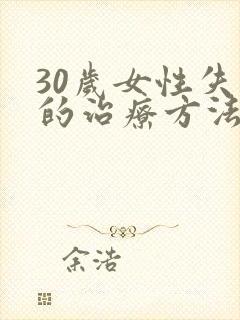 30歲女性失
的治療方法
余浩